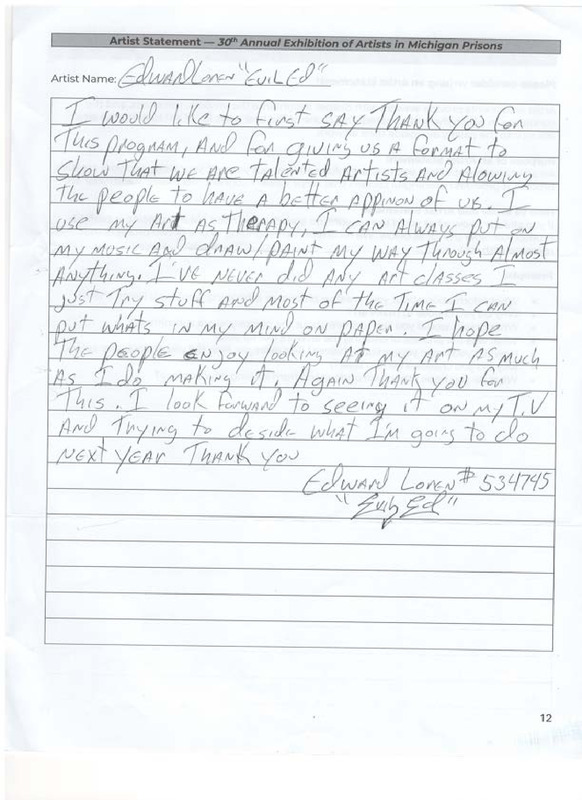 Artist Statement — 30th Annual Exhibition of Artists in Michigan Prisons
Artist Name: Edward Loren "Evil Ed"
I would like to first say Thank you for
This program, And for giving us a format to
show that we are talented Artists And Alowing
the people to have a better appinon of us. I
use my Art as Therapy, I can Always put on
my music And draw/paint my way through Almost
Anything. I've never did any art classes I
just Try stuff and most of the Time I can
put whats in my mind on paper. I hope
The people enjoy looking at my art as much
as I do making it. Again Thank you for
This. I look forward to seeing it on my T.V
And Trying to deside what I'm going to do
next year Thank you
Edward Loren # 534745
"Evil Ed"
12